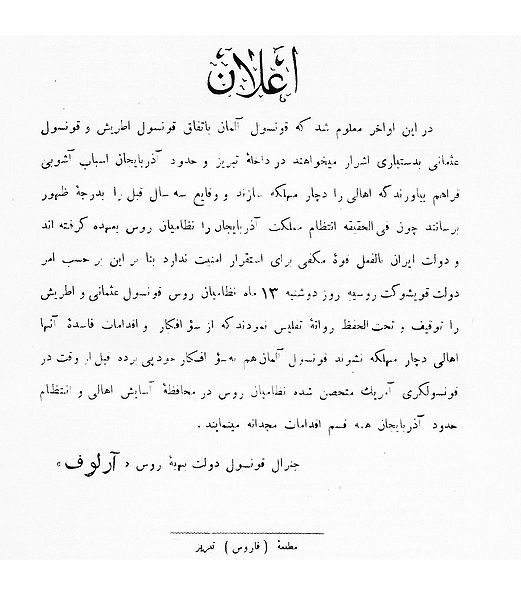 اعلان
در این اواخر معلوم شد که قونسول آلمان باتفاق قونسول اطریش و قونسول
عثمانی بدستیاری اشرار میخواهند در داخلهٔ تبریز و حدود آذربایجان اسباب آشوبی
فراهم بیاورند که اهالی را دچار مهلکه سازند و وقایع سه سال قبل را بدرجهٔ ظهور
برسانند چون فی الحقیقه انتظام مملکت آذربایجان را نظامیان روس بعهده گرفته اند
و دولت ایران بالفعل قوهٔ مکفی برای استقرار امنیت ندارد بنا بر این بر حسب امر
دولت قویشوکت روسیه روز دوشنبه ۱۳ ماه نظامیان روس قونسول عثمانی و اطریش
را توقیف و تحت الحفظ روانهٔ تفلیس نمودند که از سؤ افکار و اقدامات فاسدهٔ آنها
اهالی دچار مهلکه نشوند قونسول آلمان هم به سؤ افکار خود پی برده قبل از وقت در
قونسولگری آمریک متحصن شده نظامیان روس در محافظهٔ آسایش اهالی و انتظام
حدود آذربایجان همه قسم اقدامات مجدانه مینمایند .
جنرال قونسول دولت بهیهٔ روس « آرلوف »
مطبعهٔ ( فاروس ) تبریز